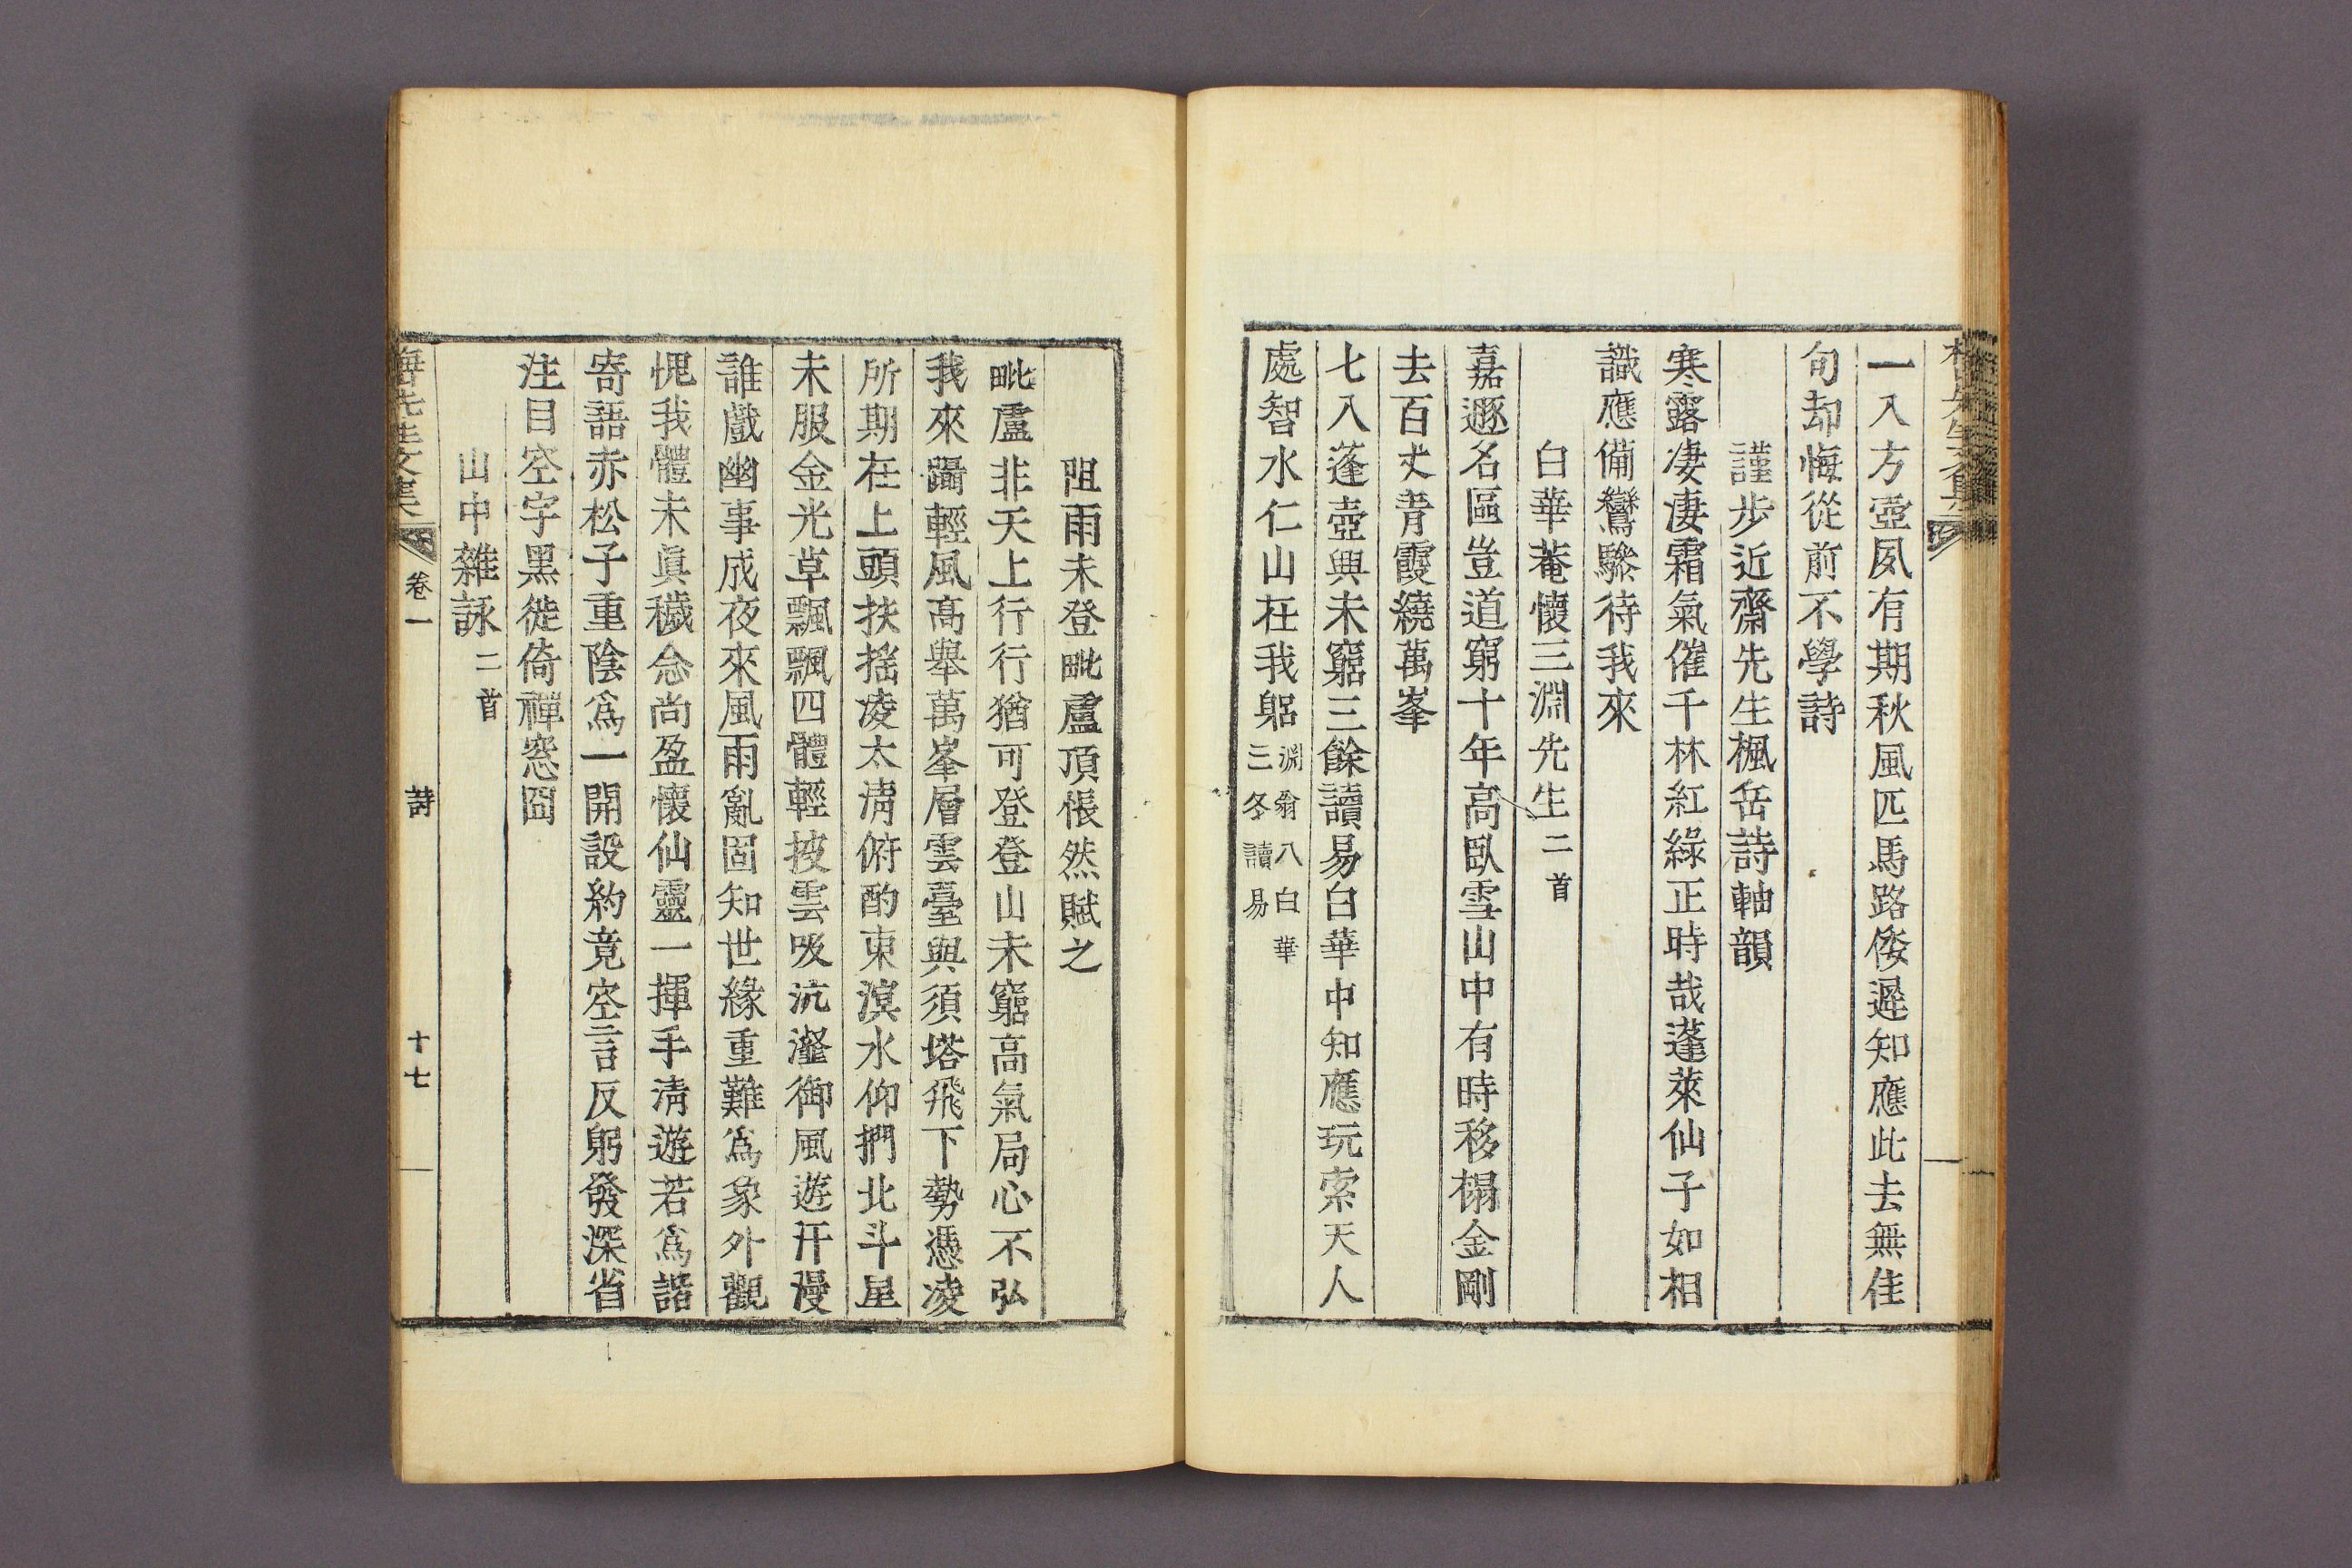 一入方壺夙有期秋風匹馬路倭遲知應此去無佳
句却悔從前不學詩
謹步近齋先生楓岳詩軸韻
寒露凄凄霜氣催千林紅綠正時哉蓬萊仙子如相
識應備鸞驂待我來
白華菴懷三淵先生二首
嘉遯名區豈道窮十年高臥雪山中有時移榻金剛
去百丈靑霞繞萬峯
七入蓬壺興未窮三餘讀易白華中知應玩索天人
處智水仁山在我躬
淵翁八白華
三冬讀易
阻雨未登毗盧頂悵然賦之
毗盧非天上行行猶可登登山未窮高氣局心不弘
我來躡輕風高擧萬峯層雲臺與須塔飛下勢憑凌
所期在上頭扶搖凌太淸俯酌東溟水仰捫北斗星
未服金光草飄飄四體輕披雲吸沆瀣御風遊汗漫
誰戱幽事成夜來風雨亂固知世緣重難爲象外觀
愧我體未眞穢念尙盈懷仙靈一揮手淸遊若爲諧
寄語赤松子重陰爲一開設約竟空言反躬發深省
注目空宇黑徙倚禪窓冏
山中雜詠二首
卷一
詩
十七